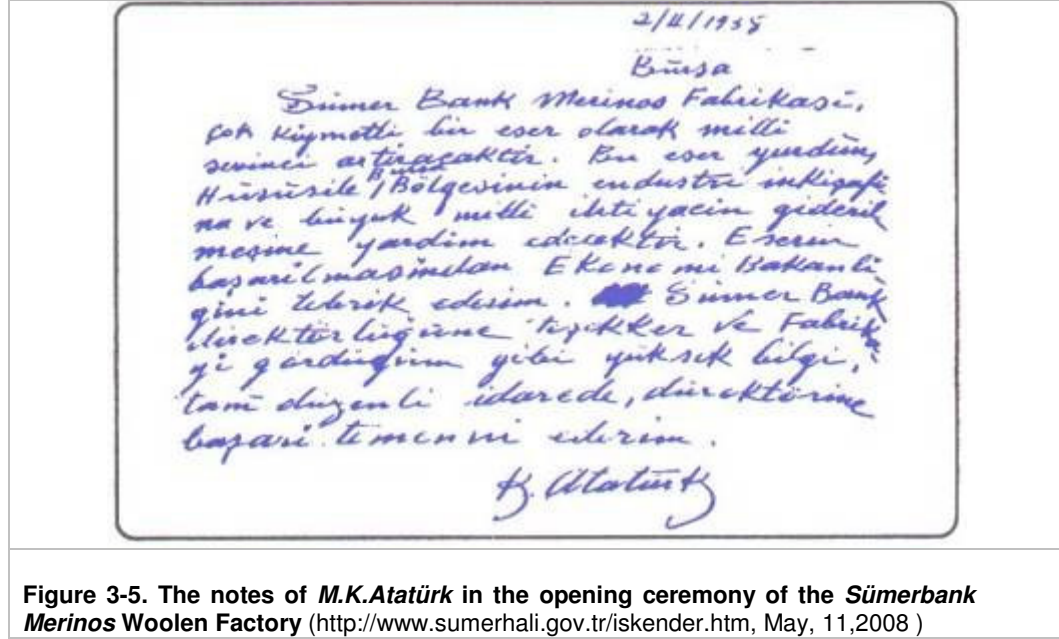 2/II/1938
Bursa
Sümer Bank Merinos Fabrikası,
çok kıymetli bir eser olarak milli
sevinci artıracaktır. Bu eser yurdun,
Hususile Bursa Bölgesinin endustri inkişafı
na ve büyük milli ihtiyacın gideril
mesine yardım edecektir. Eserin
başarılmasından Ekonomi Bakanlı
ğını tebrik ederim. Sümer Bank
direktörlüğüne teşekker ve Fabrika
yi gördüğüm gibi yüksek bilgi,
tam düzenli idarede, direktörüne
başarı temenni ederim.
K. Atatürk
Figure 3-5. The notes of M.K.Atatürk in the opening ceremony of the Sümerbank
Merinos Woolen Factory (http://www.sumerhali.gov.tr/iskender.htm, May, 11,2008 )